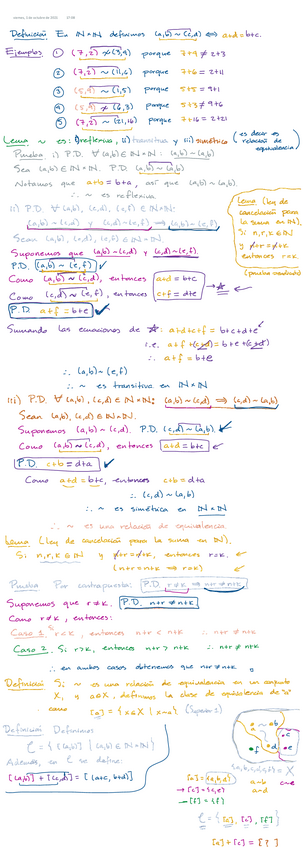 viernes, 3 de octubre de 2025 21:08
Definición En ℕ×ℕ definimos (a,b)~(c,d) ⟺ a+d=b+c.
Ejemplos ① (7,2)≁(3,9) porque 7+9≠2+3
② (7,2)~(11,6) porque 7+6=2+11
③ (5,9)~(1,5) porque 5+5=9+1
④ (5,9)≁(6,3) porque 5+3≠9+6
⑤ (7,2)~(21,16) porque 7+16=2+21
Lema ~ es: i) reflexiva, ii) transitiva y iii) simétrica (es decir es relación de equivalencia)
Prueba: i) P.D. ∀(a,b)∈ℕ×ℕ: (a,b)~(a,b)
Sea (a,b)∈ℕ×ℕ. P.D. (a,b)~(a,b)
Notamos que a+b=b+a, así que (a,b)~(a,b)
∴ ~ es reflexiva.
Lema (ley de cancelación para la suma en ℕ).
Si n,r,k∈ℕ
y n+r=n+k
entonces r=k
(prueba más tarde)
ii) P.D. ∀(a,b),(c,d),(e,f)∈ℕ×ℕ:
(a,b)~(c,d) y (c,d)~(e,f) ⟹ (a,b)~(e,f)
Sean (a,b),(c,d),(e,f)∈ℕ×ℕ
Suponemos que (a,b)~(c,d) y (c,d)~(e,f)
P.D. (a,b)~(e,f)
Como (a,b)~(c,d), entonces a+d=b+c
Como (c,d)~(e,f), entonces c+f=d+e
P.D. a+f=b+e
Sumando las ecuaciones de ☆: a+d+c+f=b+c+d+e
i.e. a+f+(c+d)=b+e+(c+d)
∴ a+f=b+e
∴ (a,b)~(e,f)
∴ ~ es transitiva en ℕ×ℕ
iii) P.D. ∀(a,b),(c,d)∈ℕ×ℕ: (a,b)~(c,d) ⟹ (c,d)~(a,b)
Sean (a,b),(c,d)∈ℕ×ℕ.
Suponemos (a,b)~(c,d). P.D. (c,d)~(a,b)
Como (a,b)~(c,d), entonces a+d=b+c
P.D. c+b=d+a
Como a+d=b+c, entonces c+b=d+a
∴ (c,d)~(a,b)
∴ ~ es simétrica en ℕ×ℕ
∴ ~ es una relación de equivalencia.
Lema (ley de cancelación para la suma en ℕ).
Si n,r,k∈ℕ y n+r=n+k, entonces r=k.
(n+r=n+k ⟹ r=k)
Prueba Por contrapuesta: P.D. r≠k ⟹ n+r≠n+k
Suponemos que r≠k. P.D. n+r≠n+k
Como r≠k, entonces:
Caso 1 r<k, entonces n+r<n+k ∴ n+r≠n+k
Caso 2. Si r>k, entonces n+r>n+k ∴ n+r≠n+k
∴ en ambos casos obtenemos que n+r≠n+k
Definición Si ~ es una relación de equivalencia en un conjunto
X, y a∈X, definimos la clase de equivalencia de "a"
como [a]={x∈X | x~a}
Definición Definimos
ℤ={[(a,b)] | (a,b)∈ℕ×ℕ}
Además, en ℤ se define:
[(a,b)]+[(c,d)]=[(a+c,b+d)]
[a]={a,b,d}
→ [c]={c,e}
→ [f]={f}
a~b c~e
a~d
={[a],[c],[f]}
[a]+[c]=[?]